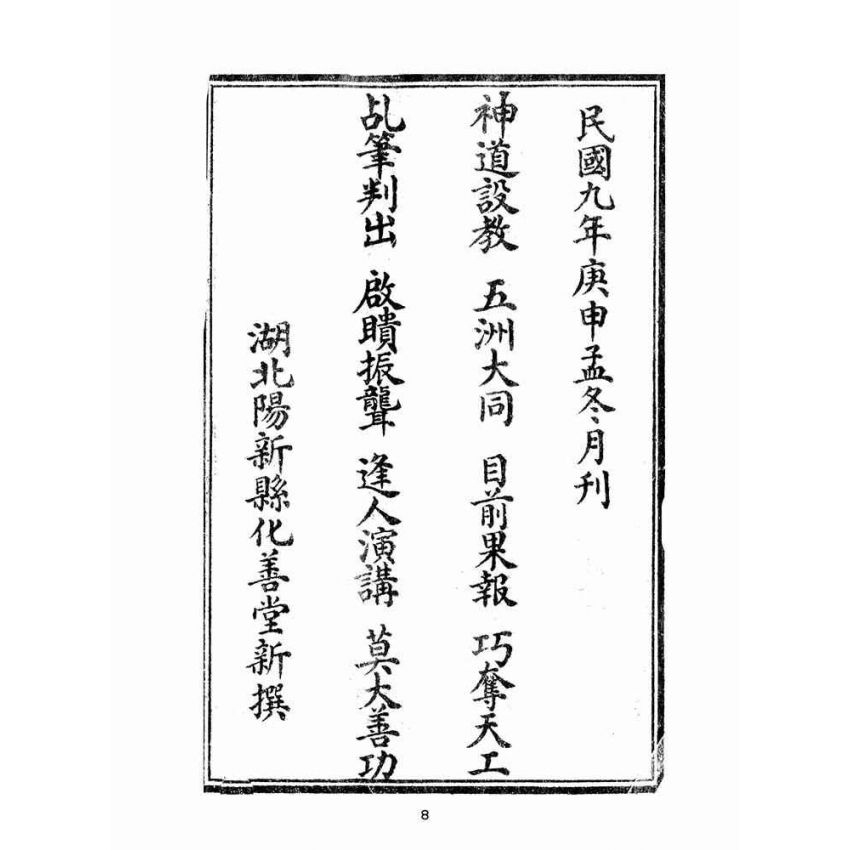 民國九年庚申孟冬月刊
神道設教 五洲大同 目前果報 巧奪天工
乩筆判出 啟瞶振聾 逢人演講 莫大善功
湖北陽新縣化善堂新撰
8